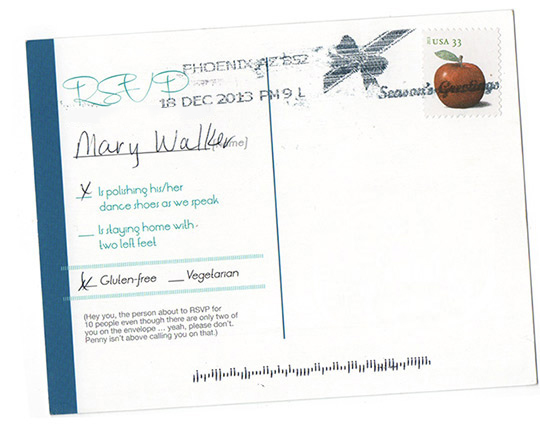 USA 33
PHOENIX AZ 852
RSVP
18 DEC 2013 PM 9 L
Season's Greetings
Mary Walker
(name)
X Is polishing his/her
dance shoes as we speak
__ Is staying home with
two left feet
X Gluten-free __ Vegetarian
(Hey you, the person about to RSVP for
10 people even though there are only two of
you on the envelope ... yeah, please don't.
Penny isn't above calling you on that.)